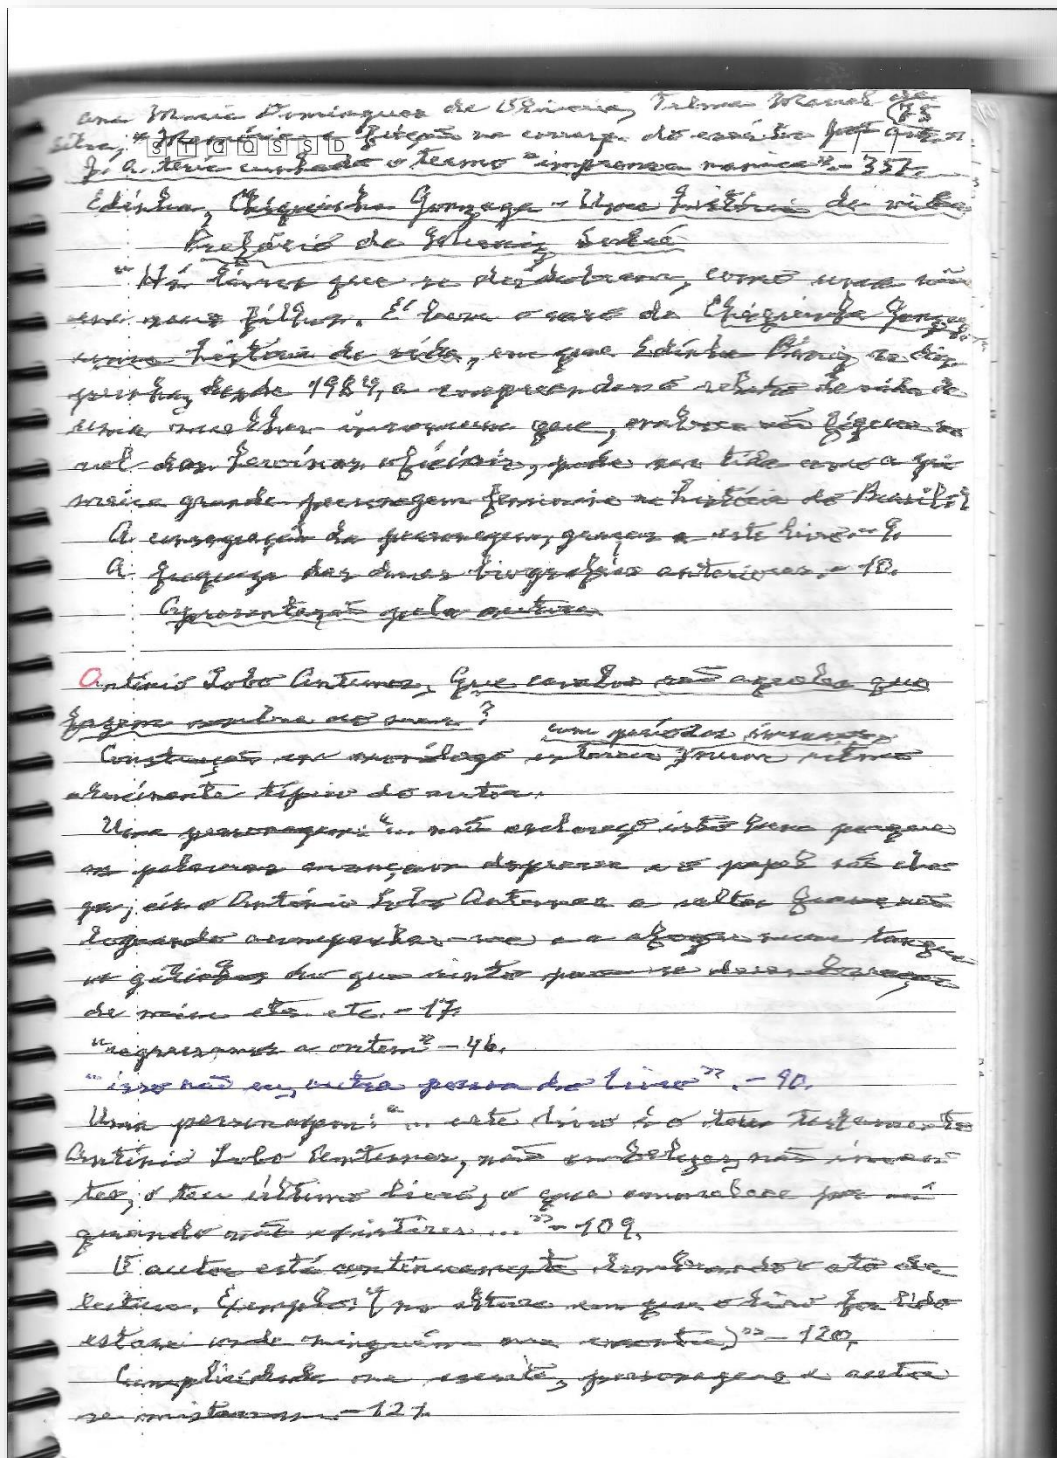 Ana Maria Domingues de Oliveira, Telma Maciel da 75
Silva, "Memória e ficção na corresp. do escritor José
J. A. teria cunhado o termo "imprensa nanica". - 357.
S T Q Q S S D
Edinha, Chiquinha Gonzaga - Uma história de vida
Prefácio de Muniz Sodré
"Há livros que se desdobram, como uma mãe
em seus filhos. É bem o caso da Chiquinha Gonzaga:
uma história de vida, em que Edinha Diniz se dis-
punha, desde 1984, a empreender o relato da vida de
uma mulher incomum que, embora não figure no
rol das heroínas oficiais, pode ser tida como a pri-
meira grande personagem feminina na história do Brasil."
A consagração da personagem, graças a este livro. - 9.
A fraqueza das duas biografias anteriores. - 10.
Apresentação pela autora
António Lobo Antunes, Que cavalos são aqueles que
fazem sombra no mar?
com períodos
Construção em monólogo interior num ritmo
alucinante típico do autor.
Uma personagem: "... não esclareço isto bem porque
as palavras avançam depressa e o papel não che-
ga, eis o António Lobo Antunes a saltar frases não
logrando acompanhar-me e a afogar num tanque
os gatinhos do que sinto para se desembaraçar
de mim etc. etc. - 17.
"regressamos a ontem" - 46.
"isso não eu, outra pessoa do livro". - 90.
Uma personagem: "... este livro é o teu testamento
António Lobo Antunes, não embelezes, não inven-
tes, o teu último livro, o que amarelece por aí
quando não existires ..." - 109.
O autor está continuamente lembrando o ato de
leitura. Exemplo: "(na altura em que o livro for lido
estarei onde ninguém me encontra)" - 120.
Cumplicidade na escrita, personagens e autor
se misturam. - 121.